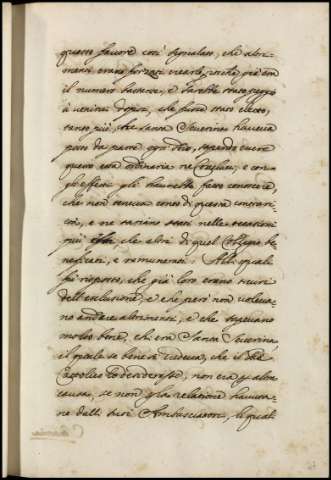 questo favore così segnalato, che altri-
menti erano forzati creare, poiche già era
il numero bastante, e sarebbe stato peggio
à venirci dopoi, che fusse stato eletto,
tanto più, che Santa Severina haveva
posto da parte ogni odio, sapendo essere
questo cosa ordinaria ne Conclavi; e con
gli effetti gli haverebbe fatto conoscere,
che non teneva conto di queste contrarie-
tà, e ne sariano stati nelle occasioni
più essi, che altri di quel Collegio be-
neficati, e remunerati; Alli quali
fù risposto, che già loro erano sicuri
dell'esclusione, e che però non voleva-
no andare altrimenti, e che sapevano
molto bene, chi era Santa Severina
il quale se bene si vedeva, che il Rè
Cattolico lo desiderasse, non era per altra
causa, se non per la relatione havuta-
ne dalli suoi Ambasciatori, li quali